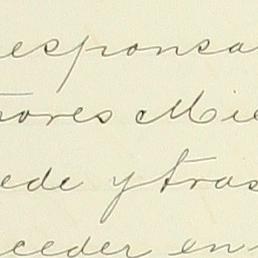 esponsa
ores Mie
ede y tras
ceder en